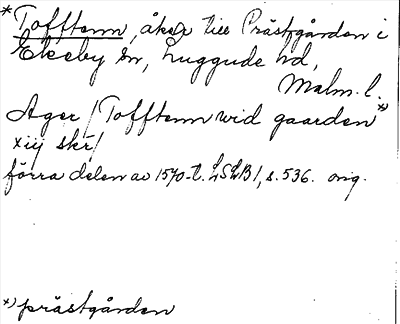 *Tofftenn, åker till Prästgården i
Ekeby sn, Luggude hd,
Malm. l.
Ager / Tofftenn wid gaarden *)
xiij skr/
förra delen av 1570-t. LSLB1, s. 536. orig.
*) prästgården